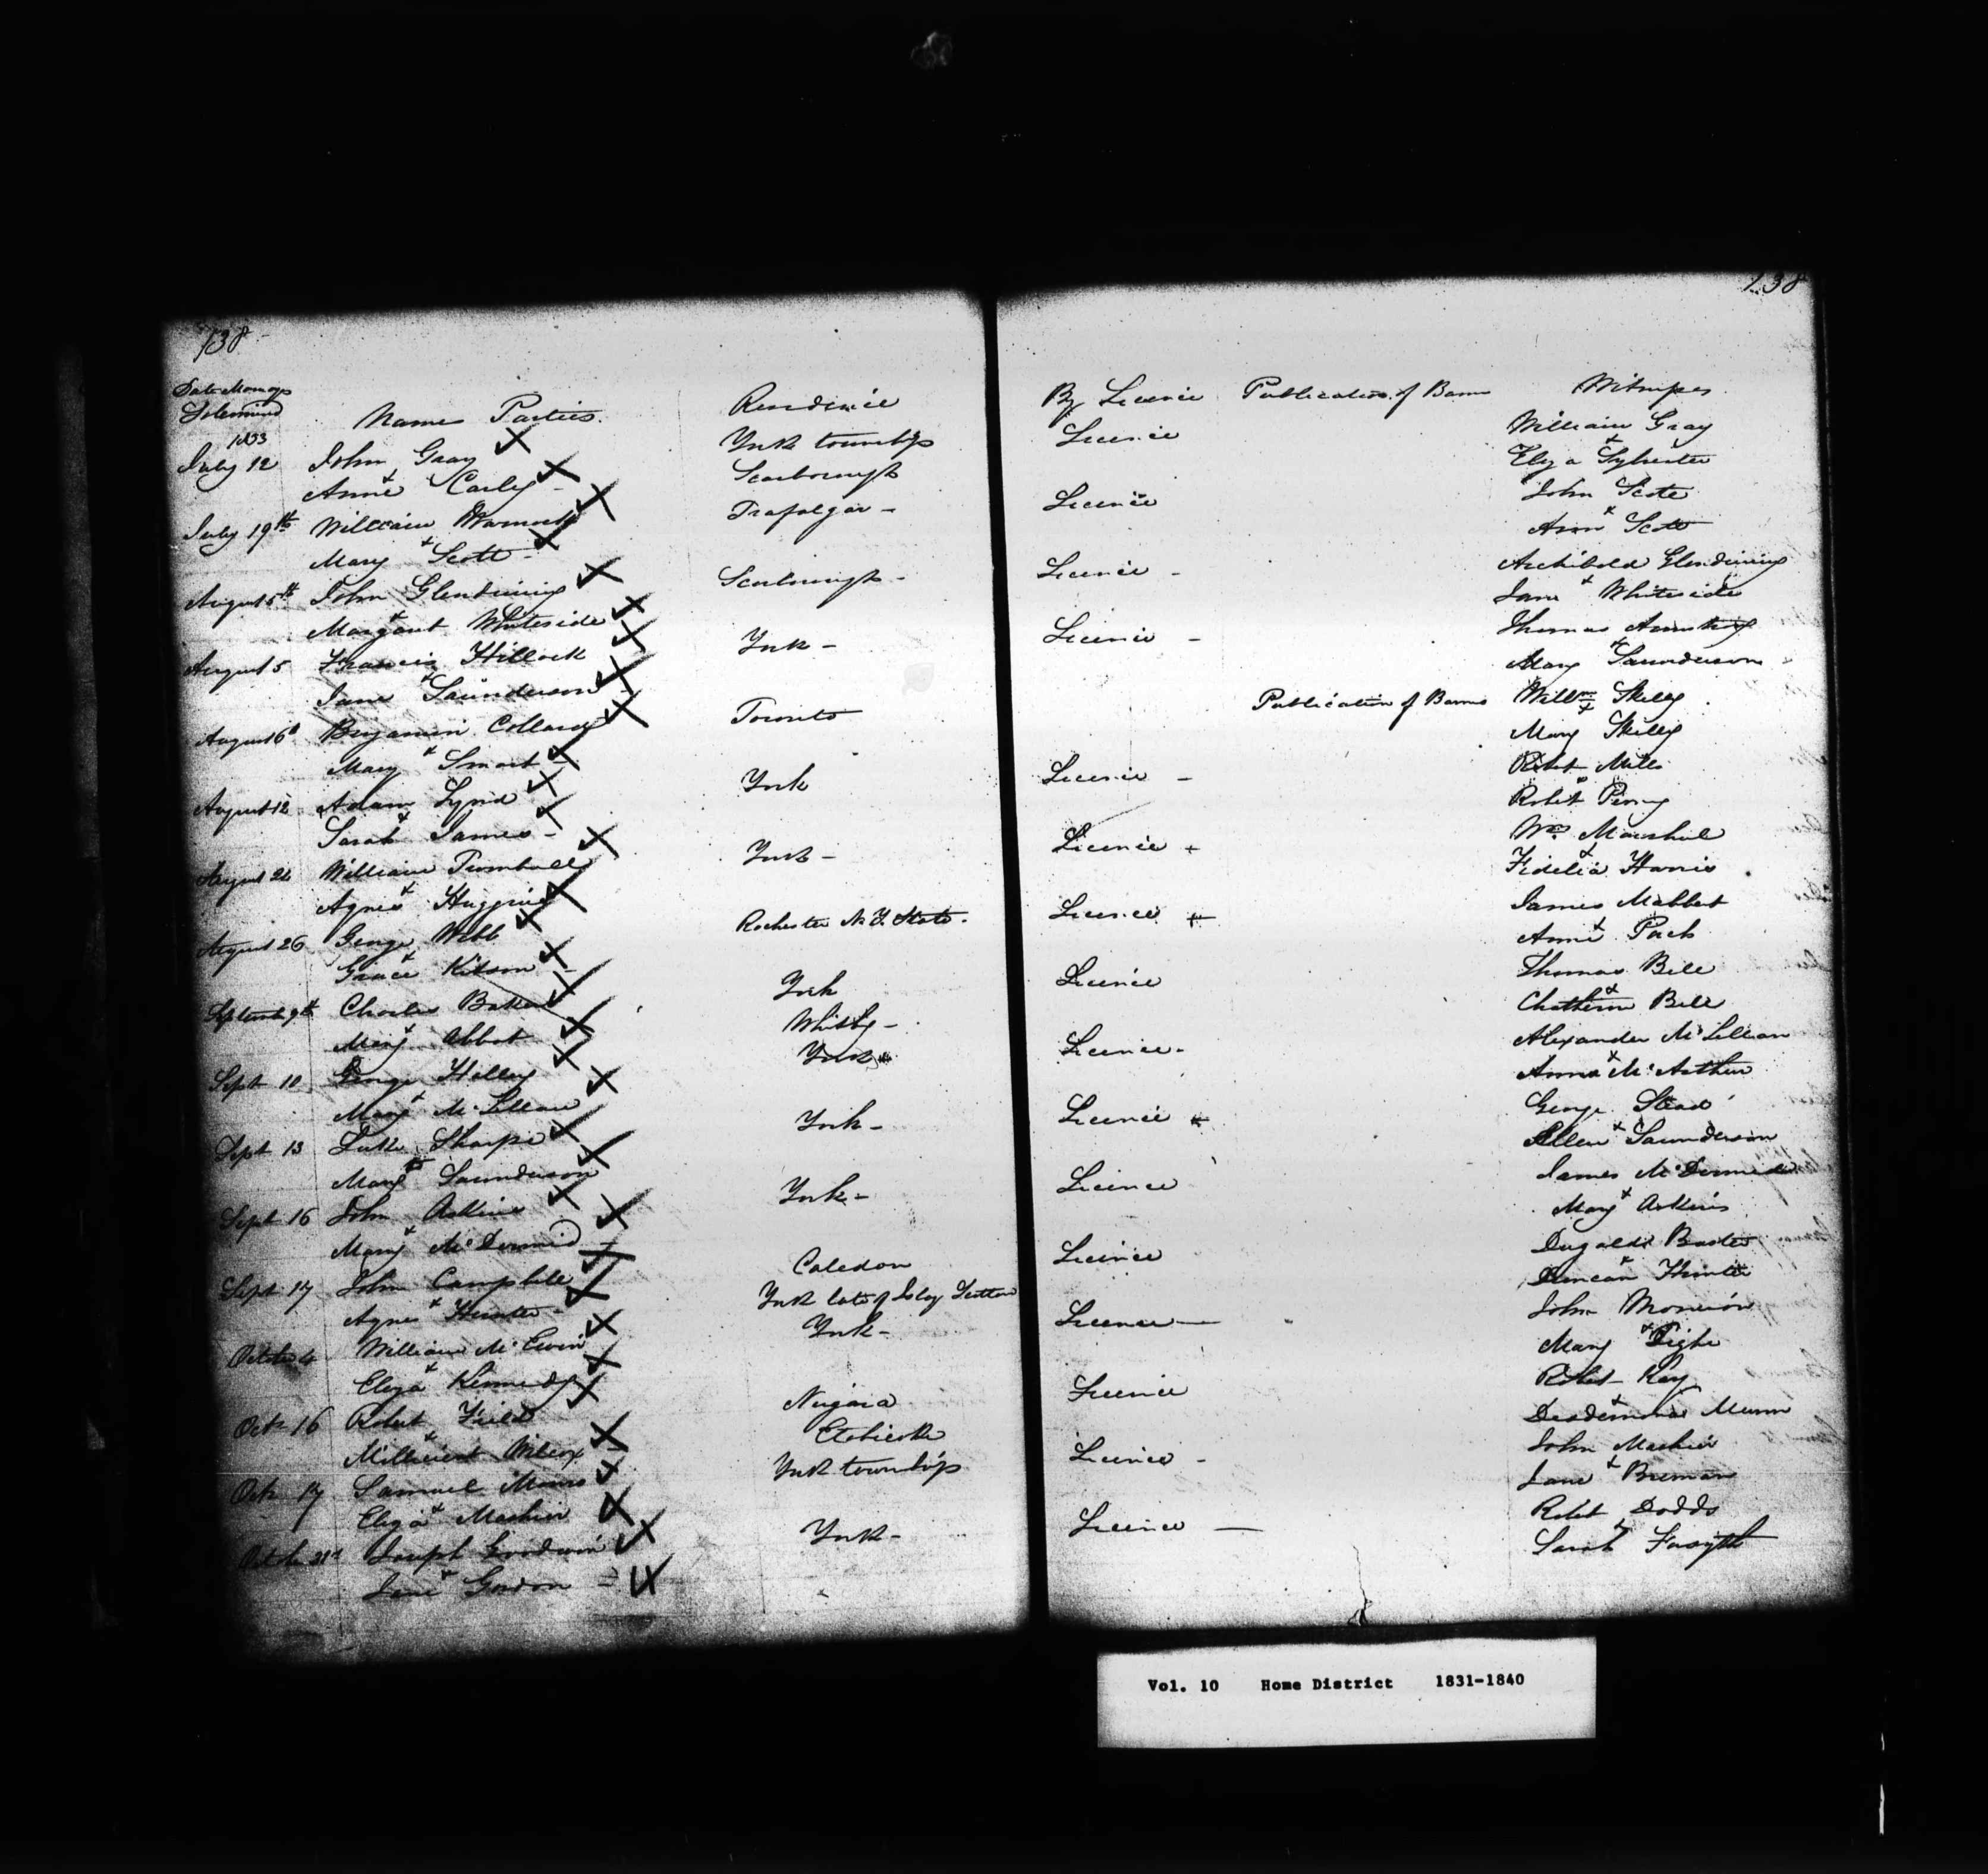 138
138
Date Marriage
Solemnized
Names Parties.
Residence
By Licence
Publication of Banns
Witnesses
1833
July 12
John Gray
York township
Licence
William Gray
&
Anne Carley -
Scarborough
Eliza Sylvester
July 19th
William
Trafalgar -
Licence
John Scott
&
Mary Scott -
Ann Scott
August 5th
John Glendinning
Scarborough -
Licence -
Archibald Glendinning
&
Margaret Whiteside
Jane Whiteside
August 5
Francis Hillock
York -
Licence -
Thomas Armstrong
&
Jane Saunderson
Mary Saunderson
August 6th
Benjamin Collard
Toronto
Publication of Banns
Willm Skelly
&
Mary Smart
Mary Skelly
August 12
Adam
York
Licence -
Robt Mills
&
Sarah James -
Robert Perry
August 24
William Turnbull
York -
Licence
Wm Marshal
&
Agnes Huggins
Fidelia Harris
August 26
George Webb
Rochester N.Y. State.
Licence
James Mabbut
&
Grace Kitson -
Anne
September 9th
Charles Baker
York
Licence
Thomas Bell
&
Mary Abbot
Whitby -
Chatherine Bell
Sept 10
George Holley
York
Licence -
Alexander McLillian
&
Mary McLillian
Anna McArthur
Sept 13
Luke Sharpe
York -
Licence
George Stead
&
Mary Saunderson
Allen Saunderson
Sept 16
John Askins
York -
Licence
James McDermid
&
Mary McDermid
Mary Askins
Sept 17
John Campbell
Caledon
Licence
Dugald
&
Agnes Hunter -
York late of Islay Scotland
Duncan Hunter
October 4
William McEwin
York -
Licence
John
&
Eliza Kennedy
Mary Tighe
Octr 16
Robert Field
Niagara
Licence
Robert Kay
&
Millicent Wilcox
Etobicoke
Desdemona Munn
Oct 17
Samuel
York township
Licence -
John Machin
&
Eliza Machin
Jane
October 21st
Joseph Goodwin
York -
Licence
Robt Dodds
&
Jane Gordon
Sarah Forsyth
Vol. 10 Home District 1831-1840